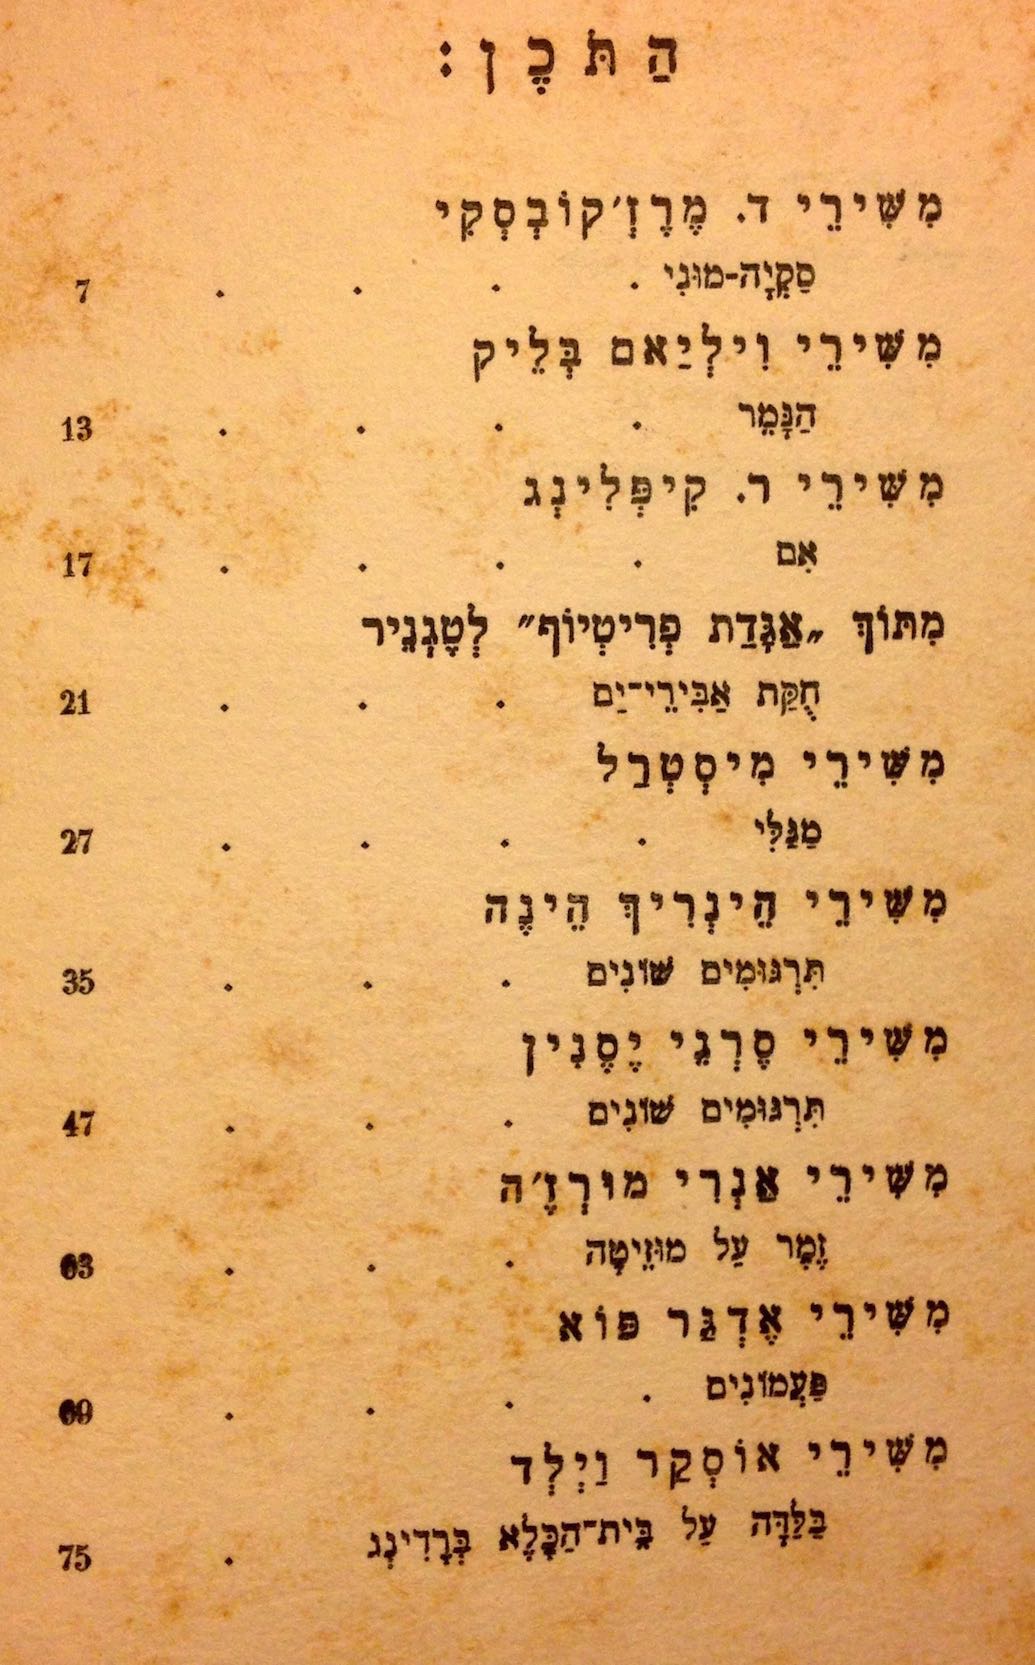 הַתֹּכֶן:
מִשִּׁירֵי ד. מֶרֶזְ׳קוֹבְסְקִי
סַקְיָה-מוּנִי . . . . 7
מִשִּׁירֵי וִילְיַאם בְּלֵיק
הַנָּמֵר . . . . 13
מִשִּׁירֵי ר. קִיפְּלִינְג
אִם . . . . 17
מִתּוֹךְ „אַגָּדַת פְרִיטְיוֹף״ לְטֶגְנֵיר
חֻקַּת אַבִּירֵי־יַם . . . 21
מִשִּׁירֵי מִיסְטְרַל
מַגַּלִּי . . . . 27
מִשִּׁירֵי הֵינְרִיךְ הֵינֶה
תִּרְגּוּמִים שׁוֹנִים . . . 35
מִשִּׁירֵי סֶרְגֵּי יֶסֶנִין
תִּרְגּוּמִים שׁוֹנִים . . . 47
מִשִּׁירֵי אַנְרִי מוּרְזֶ׳ה
זֶמֶר עַל מוּזֵיטָה . . . 63
מִשִּׁירֵי אֶדְגַּר פּוֹא
פַּעֲמוֹנִים . . . . 69
מִשִּׁירֵי אוֹסְקַר וַיְלְד
בַּלַּדָּה עַל בֵּית־הַכֶּלֶא בְּרֶדִינְג . 75